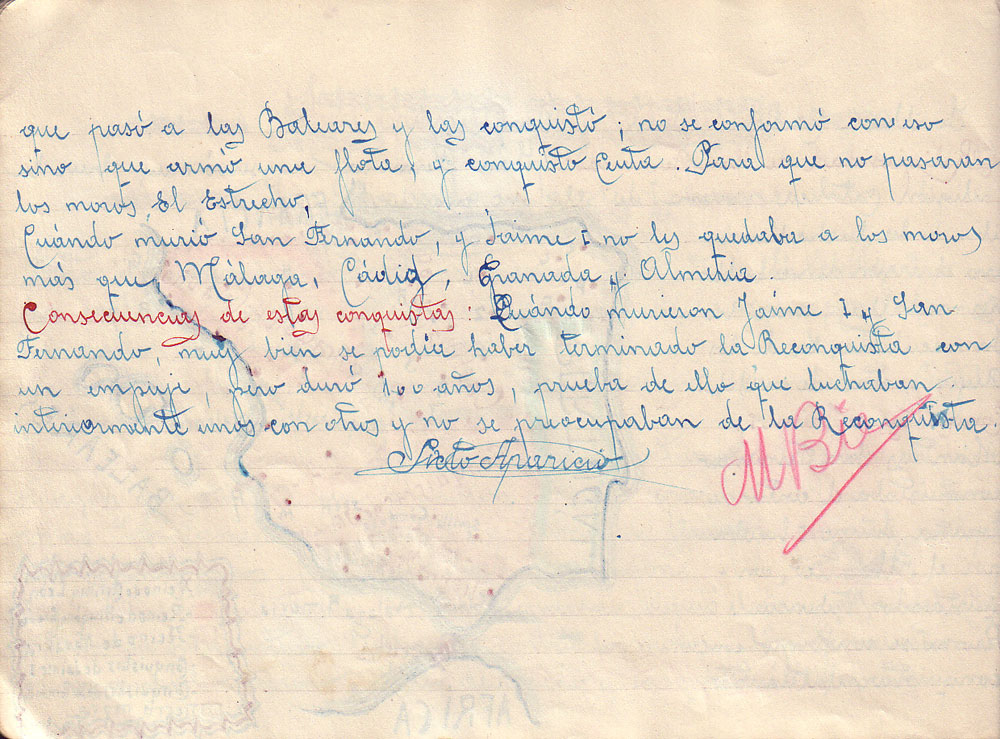 que pasó a las Baleares y las conquistó; no se conformó con eso
sino que armó una flota, y conquisto Ceuta. Para que no pasaran
los moros El Estrecho,
Cuándo murió San Fernando, y Jaime I no les quedaba a los moros
más que Málaga, Cádiz, Granada y Almería
Consecuencias de estas conquistas: Cuándo murieron Jaime I y San
Fernando, muy bien se podía haber terminado la Reconquista con
un empuje, pero duró 100 años, prueba de ello que luchaban
interiormente unos con otros y no se preocupaban de la Reconquista.
Sixto Aparicio
M Bien
AFRICA